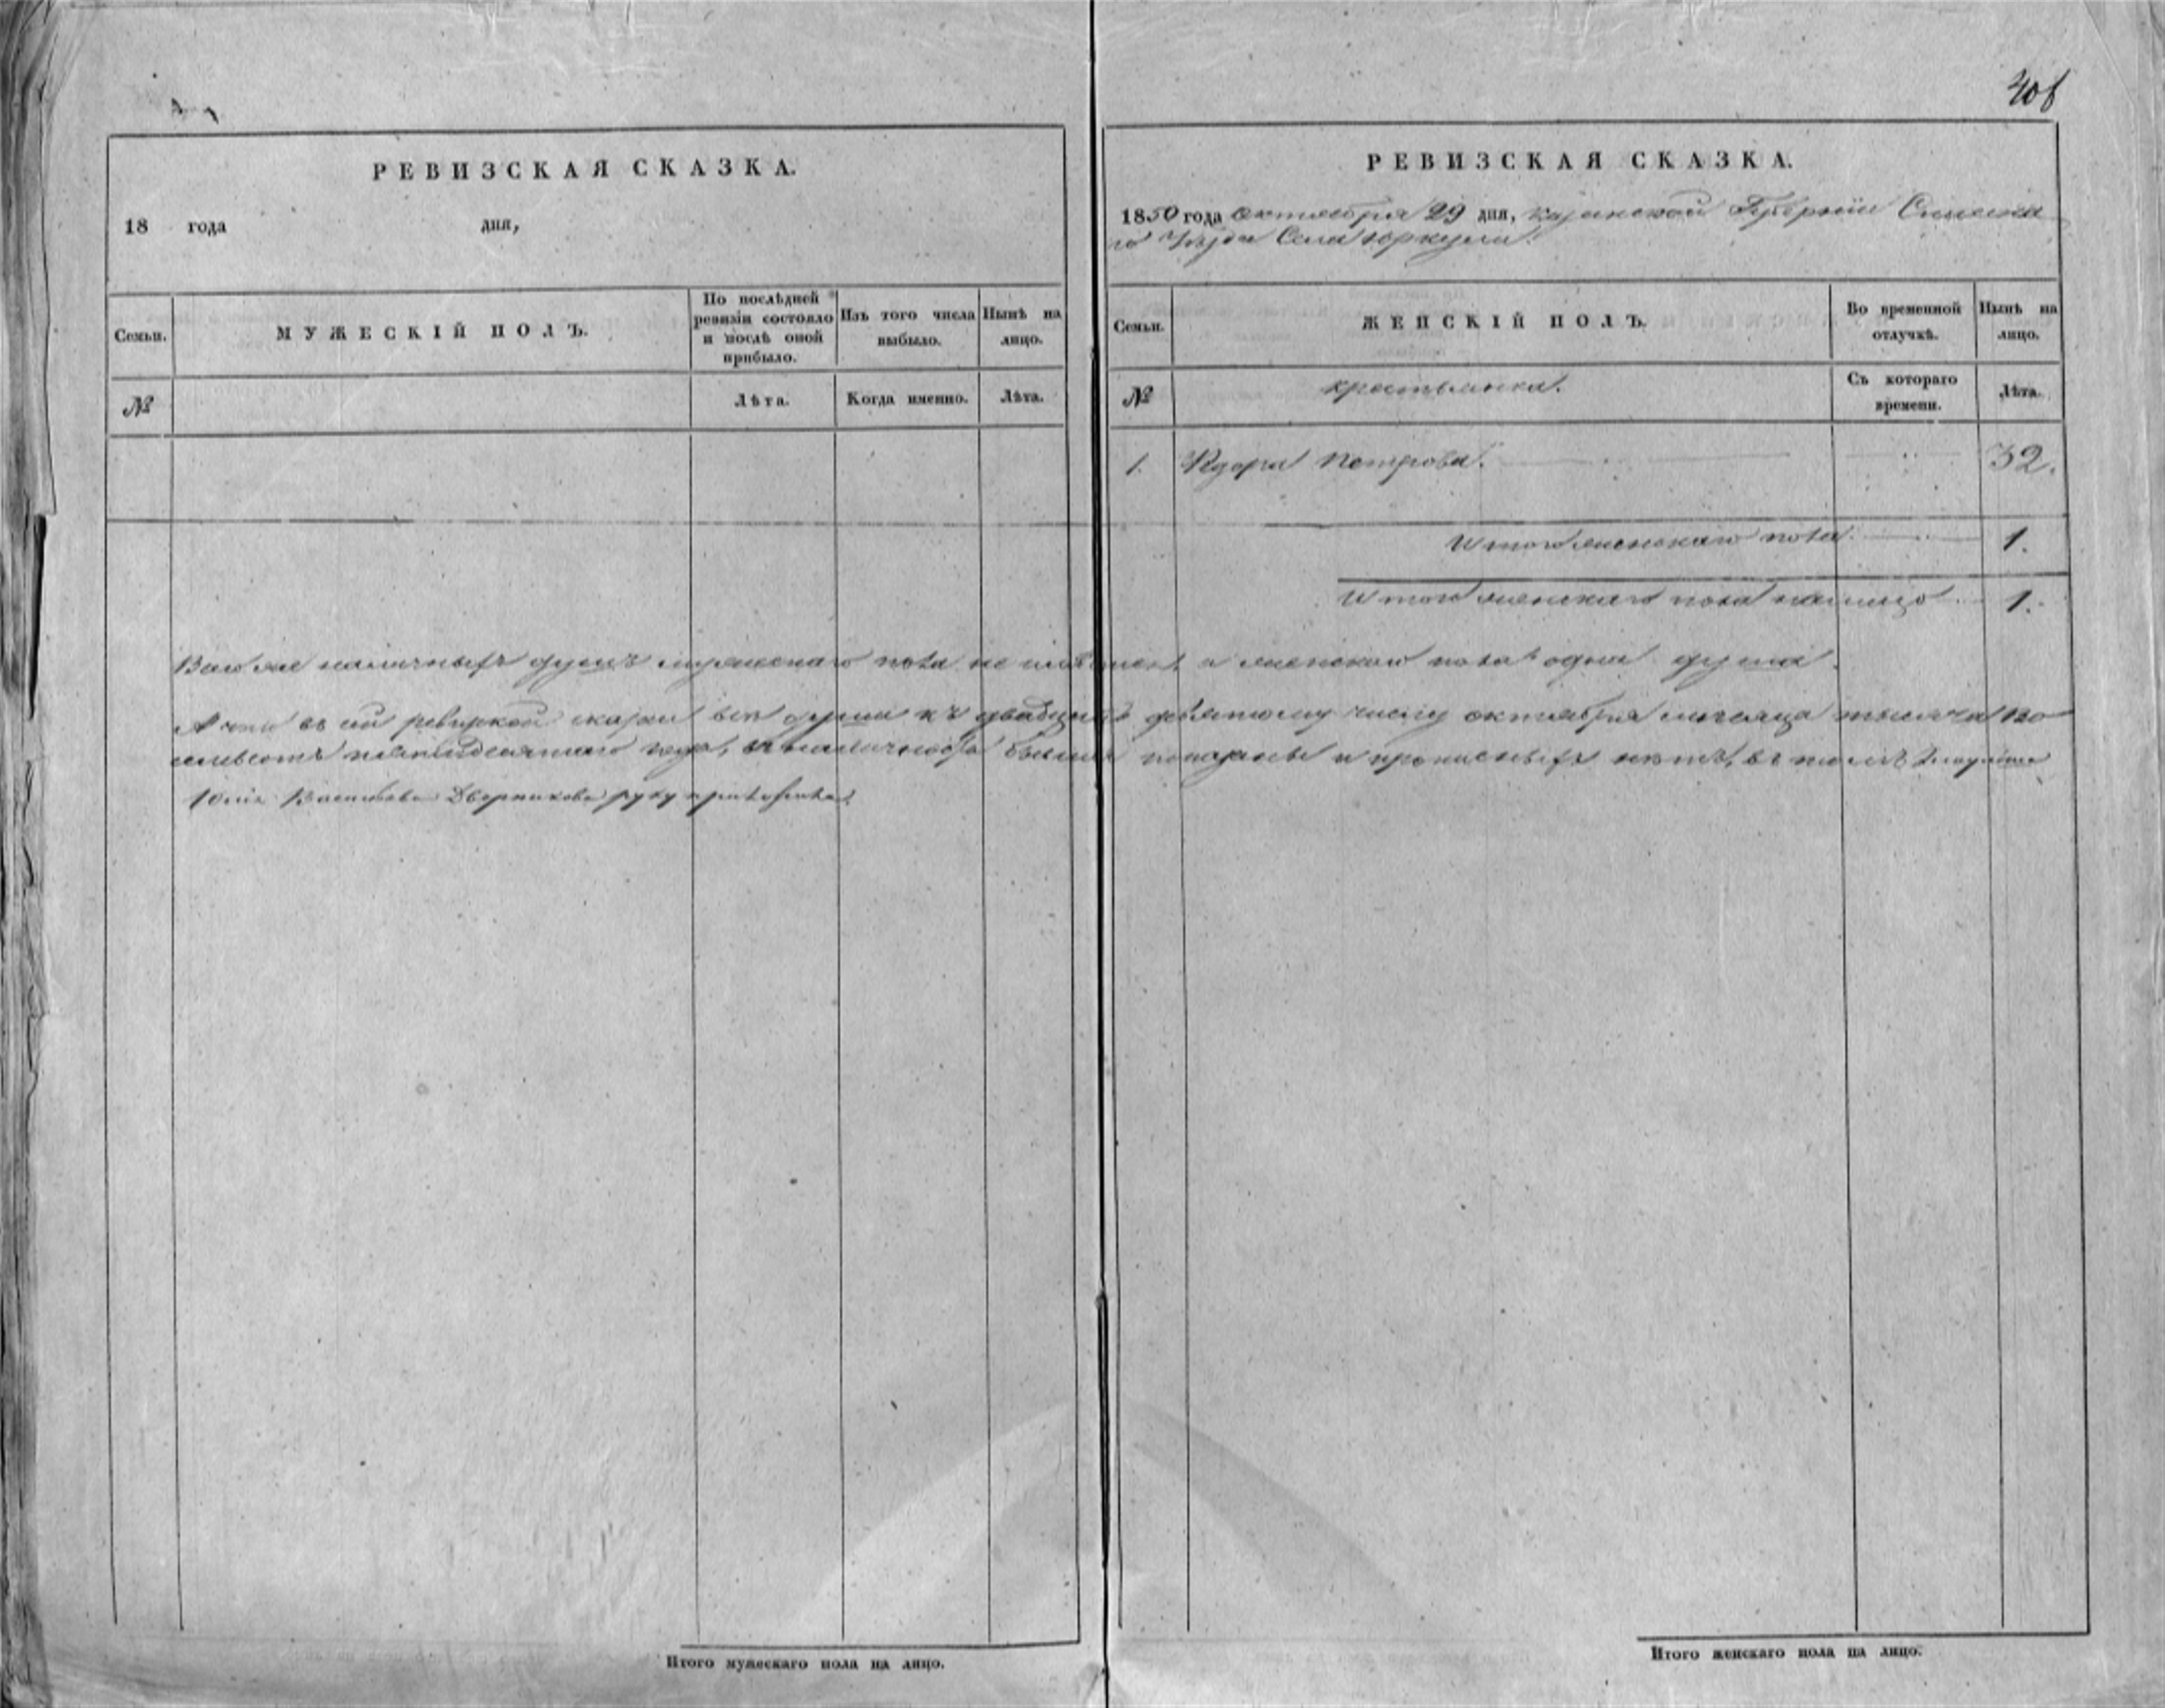 408
РЕВИЗСКАЯ СКАЗКА.
18 года дня,
Семьи.
МУЖЕСКІЙ ПОЛЪ.
По послѣдней ревизіи состояло и послѣ оной прибыло.
Изъ того числа выбыло.
Нынѣ на лицо.
№
Лѣта.
Когда именно.
Лѣта.
РЕВИЗСКАЯ СКАЗКА.
1850 года октября 29 дня, казанской Губерніи Спаска
го Уѣзда Села Юркули.
Семьи.
ЖЕНСКІЙ ПОЛЪ.
Во временной отлучкѣ.
Нынѣ на лицо.
№
крестьянка.
Съ котораго времени.
Лѣта.
1. Ѳдора Петрова. 32.
Итого женскаго пола. 1.
Итого женскаго пола налицо 1.
Всего же наличныхъ душъ мужескаго пола не имѣется, а женскаго пола одна душа.
А что въ сей ревизкой сказки всѣ души къ двадцать девятому числу октября месяца тысяча во
семьсотъ пятидесятаго года, въ наличности бывшия показаны и прописныхъ нѣтъ, въ томъ
Василева Дворникова руку приложила
Итого мужескаго пола на лицо.
Итого женскаго пола на лицо.